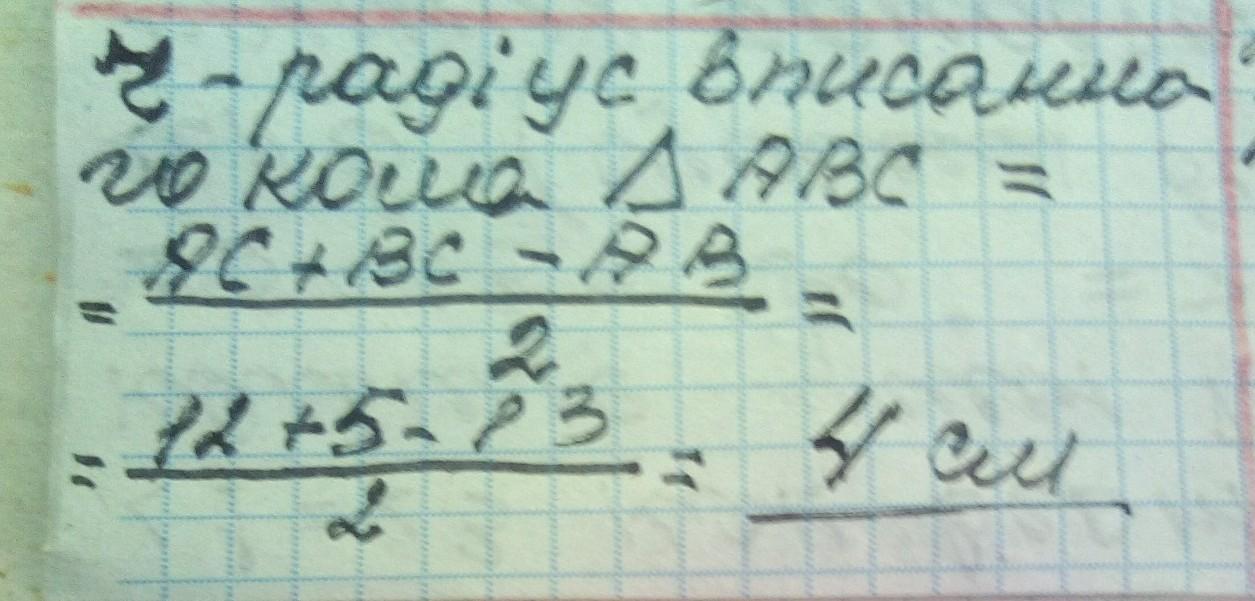 r - радіус вписанна
го кола Δ ABC =
= AC + BC - AB / 2 =
= 12 + 5 - 13 / 2 = 4 см